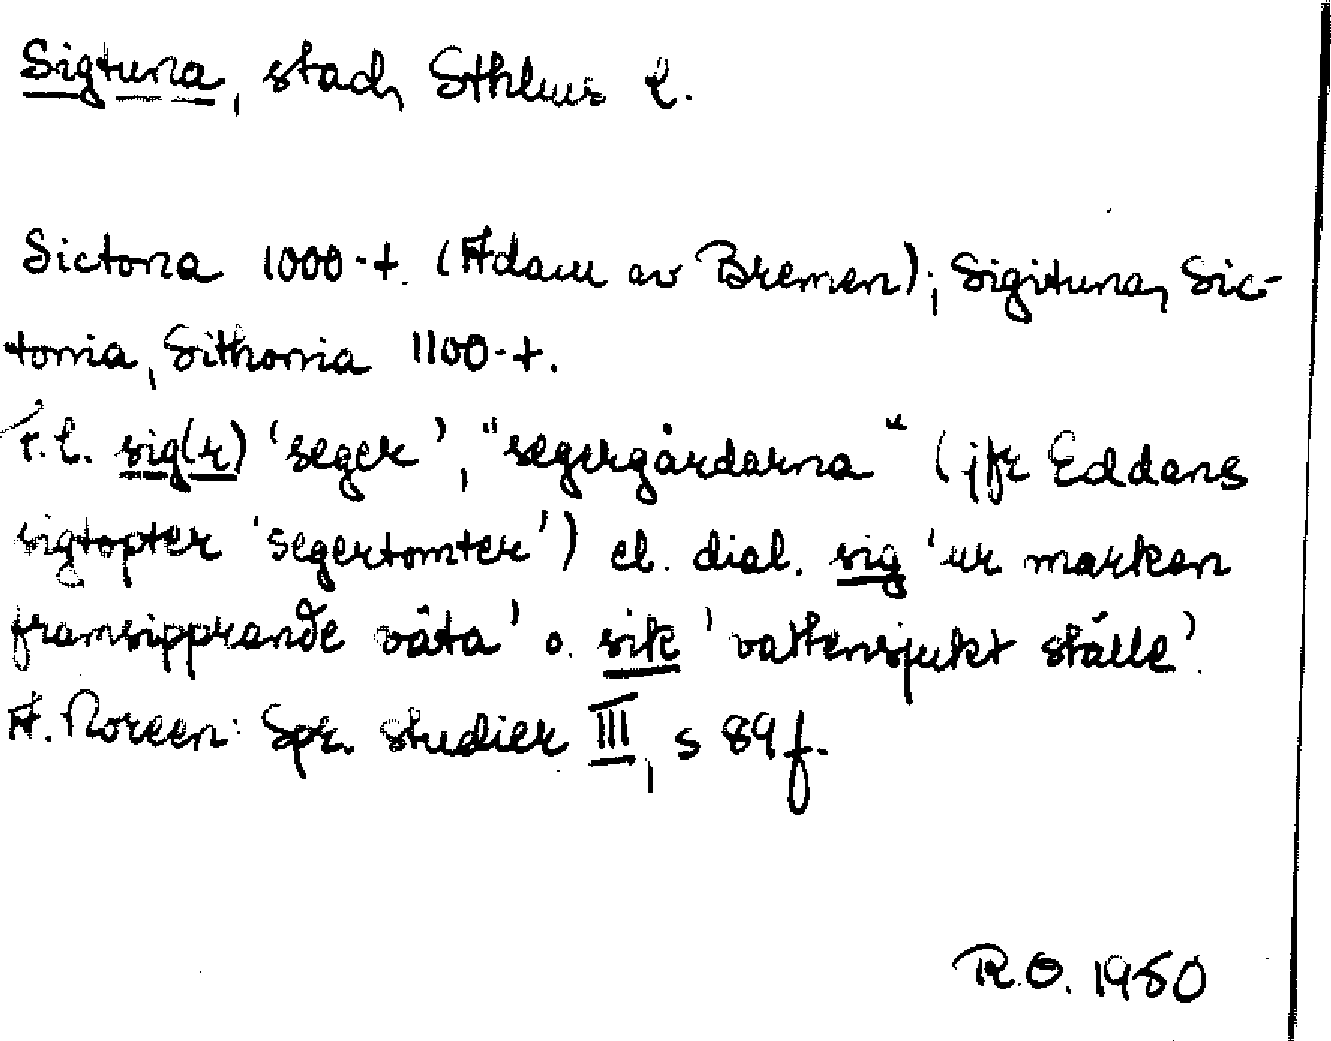 Sigtuna, stad, Sthlms l.
Sictona 1000-t. (Adam av Bremen); Sigituna, Sic-
tonia, Sithonia 1100-t.
F.l. sig(r) 'seger', "segergårdarna" (jfr Eddans
sigtopter 'segertomter') el. dial. sig 'ur marken
framsipprande väta' o. sik 'vattensjukt ställe'.
A. Noreen: Spr. studier III, s 89 f.
R.O. 1980